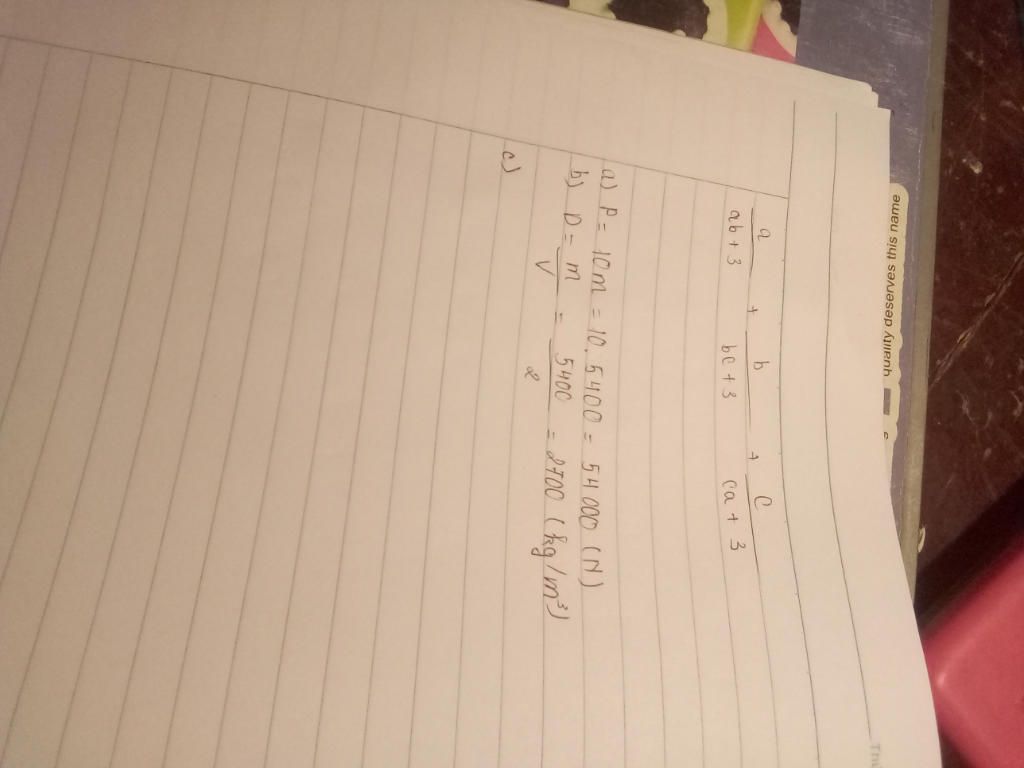 quality deserves this name
a/(ab+3) + b/(bc+3) + c/(ca+3)
a) P = 10m = 10.5400 = 54000 (N)
b) D = m/V = 5400/2 = 2700 (kg/m³)
c)